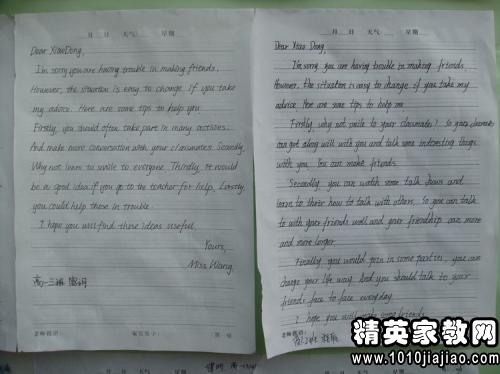 月 日 天气 星期
Dear XiaoDong,
I'm sorry you are having trouble in making friends.
However, the situation is easy to change if you take
my advice. Here are some tips to help you.
Firstly, you should often take part in many actions.
And make more conversation with your classmates. Secondly
Why not learn to smile to everyone. Thirdly, it would
be a good idea if you go to the teacher for help. Lastly,
you could help those in trouble.
I hope you will find these ideas useful.
Yours,
Miss Wang.
高一三班
老师批语: 家长签字: 第 页
月 日 天气 星期
Dear Xiao Dong,
I'm sorry, you are having trouble in making friends.
However, the situation is easy to change if you take my
advice. Here are some tips to help me.
Firstly, why not smile to your classmates? So your classmates
can get along well with you and talk some interesting things
with you. You can make friends.
Secondly, you can watch some talk shows and
learn to there how to talk with others. So you can talk
to with your friends well and your friendship can more
and more longer.
Finally, you would join in some parties, you can
change your life way. And you should talk to your
friends face to face everyday.
I hope you will make some friends
老师批语:
精英家教网
www.1010jiajiao.com